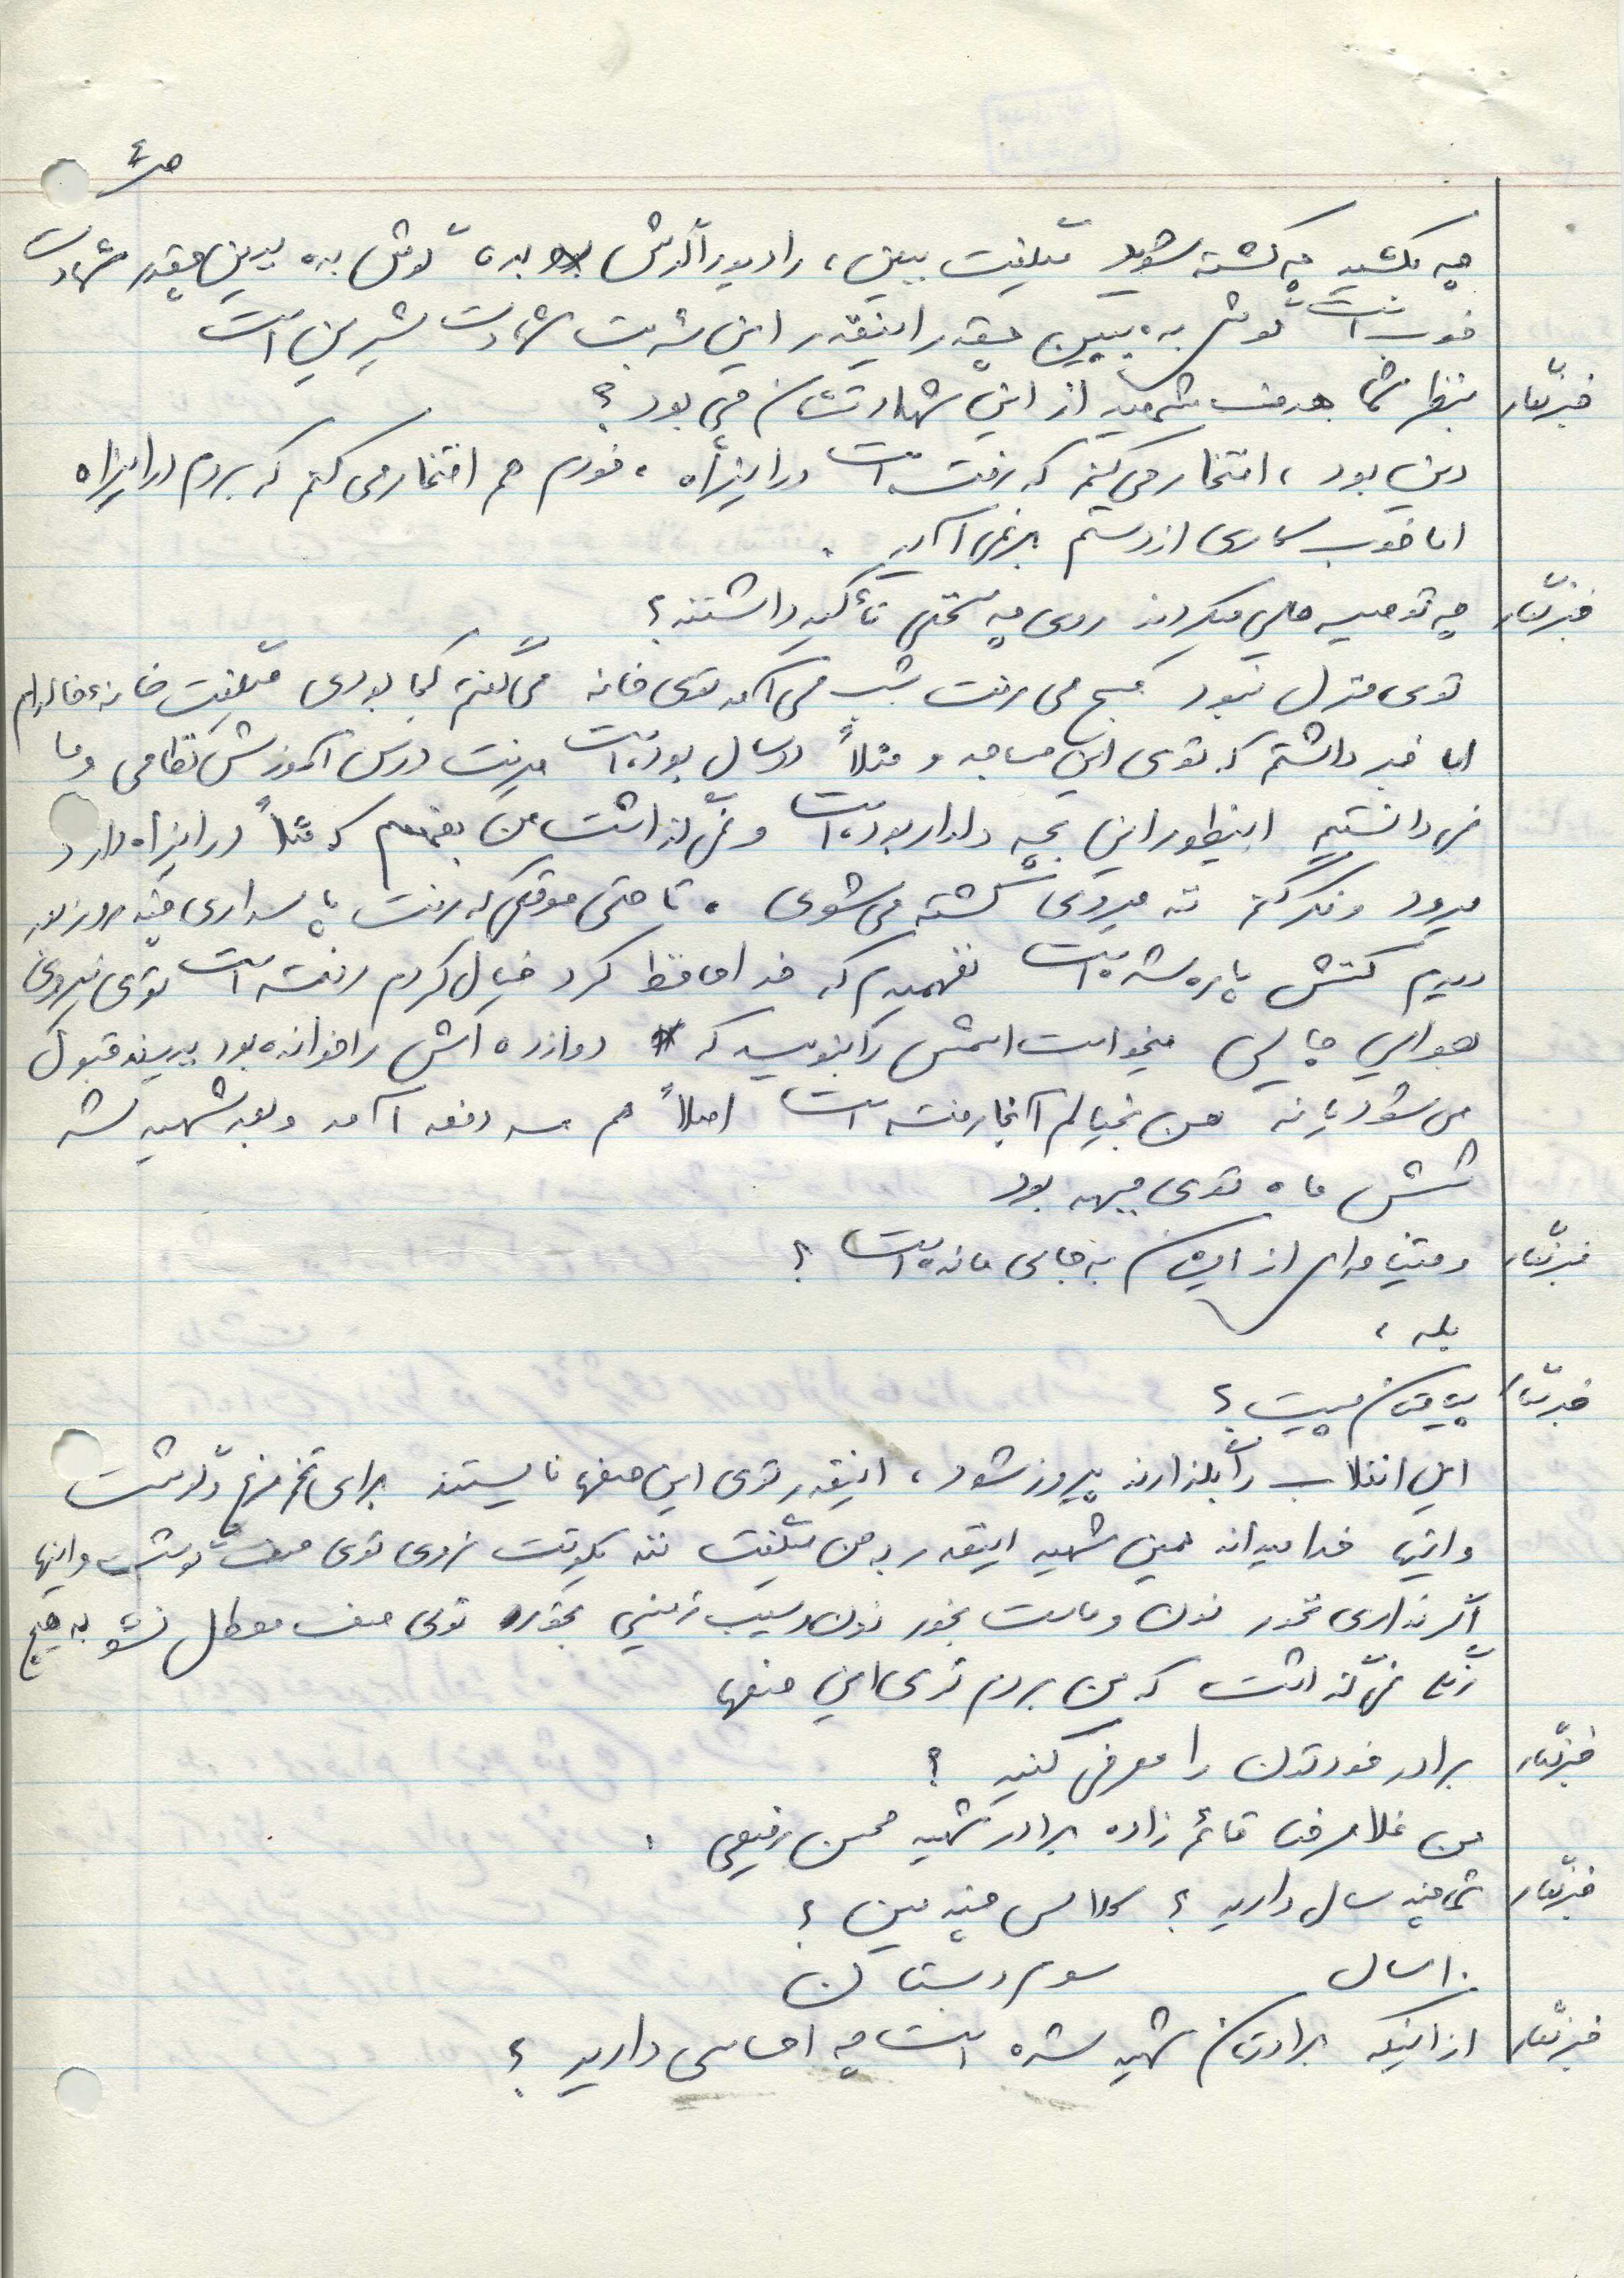 ص ۴
چه بکشید چه کشته شوید میگفت ببین، رادیو را گوش بده گوش بده ببین چقدر شهادت
خوب است گوش بده ببین چقدر اینقدر این شربت شهادت شیرین است
خبرنگار بنظر شما هدف شهید از این شهادتشان چی بود؟
دین بود، افتخار می‌کنم که رفته است در این راه، خودم هم افتخار می کنم که بروم در این راه
اما خوب کاری از دستم برنمی آید.
خبرنگار چه توصیه هایی میکردند روی چه سخنی تأکید داشتند؟
توی منزل نبود صبح می رفت شب می آمد توی خانه می گفتم کجا بودی میگفت خانه خاله‌ام
اما خبر داشتم که توی این مساجد و مثلاً دوسال بوده است میرفت درس آموزش نظامی و ما
نمی دانستیم اینطور این بچه دلدار بوده است و نمی گذاشت من بفهمم که مثلاً در این راه دارد
میرود و فکر کنم نه میروی کشته می شوی. تا حتی موقعی که رفت پاسداری چند روز بود
دیدم کتش پاره شده است نفهمیدم که خداحافظ کرد خیال کردم رفته است توی نیروی
هوایی جایی میخواست اسمش را بنویسد که دوازده اش را خوانده بود ببیند قبول
می شود یا نه من بخیالم آنجا رفته است اصلاً هم سه دفعه آمد و بعد شهید شد
شش ماه توی جبهه بود
خبرنگار وصیتنامه ای از ایشان به جای مانده است؟
بله،
خبرنگار پیامتان چیست؟
این انقلاب را بگذارند پیروز شود، اینقدر توی این صفها نایستند برای تخم مرغ و گوشت
و اینها خدا میداند همین شهید اینقدر به من میگفت ننه یکوقت نروی توی صف گوشت و اینها
اگر نداری نخور نون و ماست بخور نون و سیب زمینی بخور توی صف معطل نشو به هیچ
رنگی نمی گذاشت که من بروم توی این صفها
خبرنگار برادر خودتون را معرفی کنید؟
من غلامرضا قائم زاده برادر شهید محسن رفیعی.
خبرنگار شما چند سال دارید؟ کلاس چندمین؟
۱۰ سال سوم دبستان
خبرنگار از اینکه برادرتان شهید شده است چه احساسی دارید؟